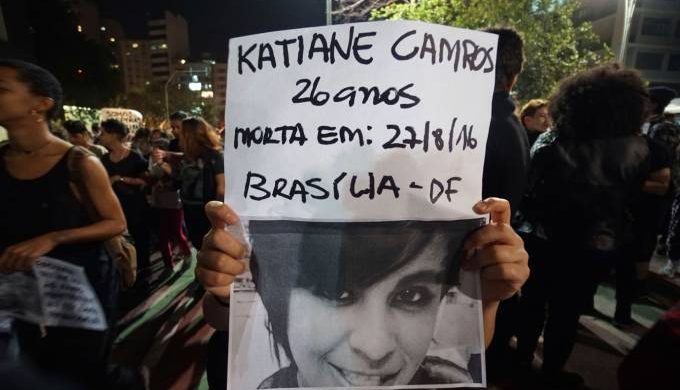 KATIANE CAMPOS
26 anos
MORTA EM: 27/8/16
BRASÍLIA - DF